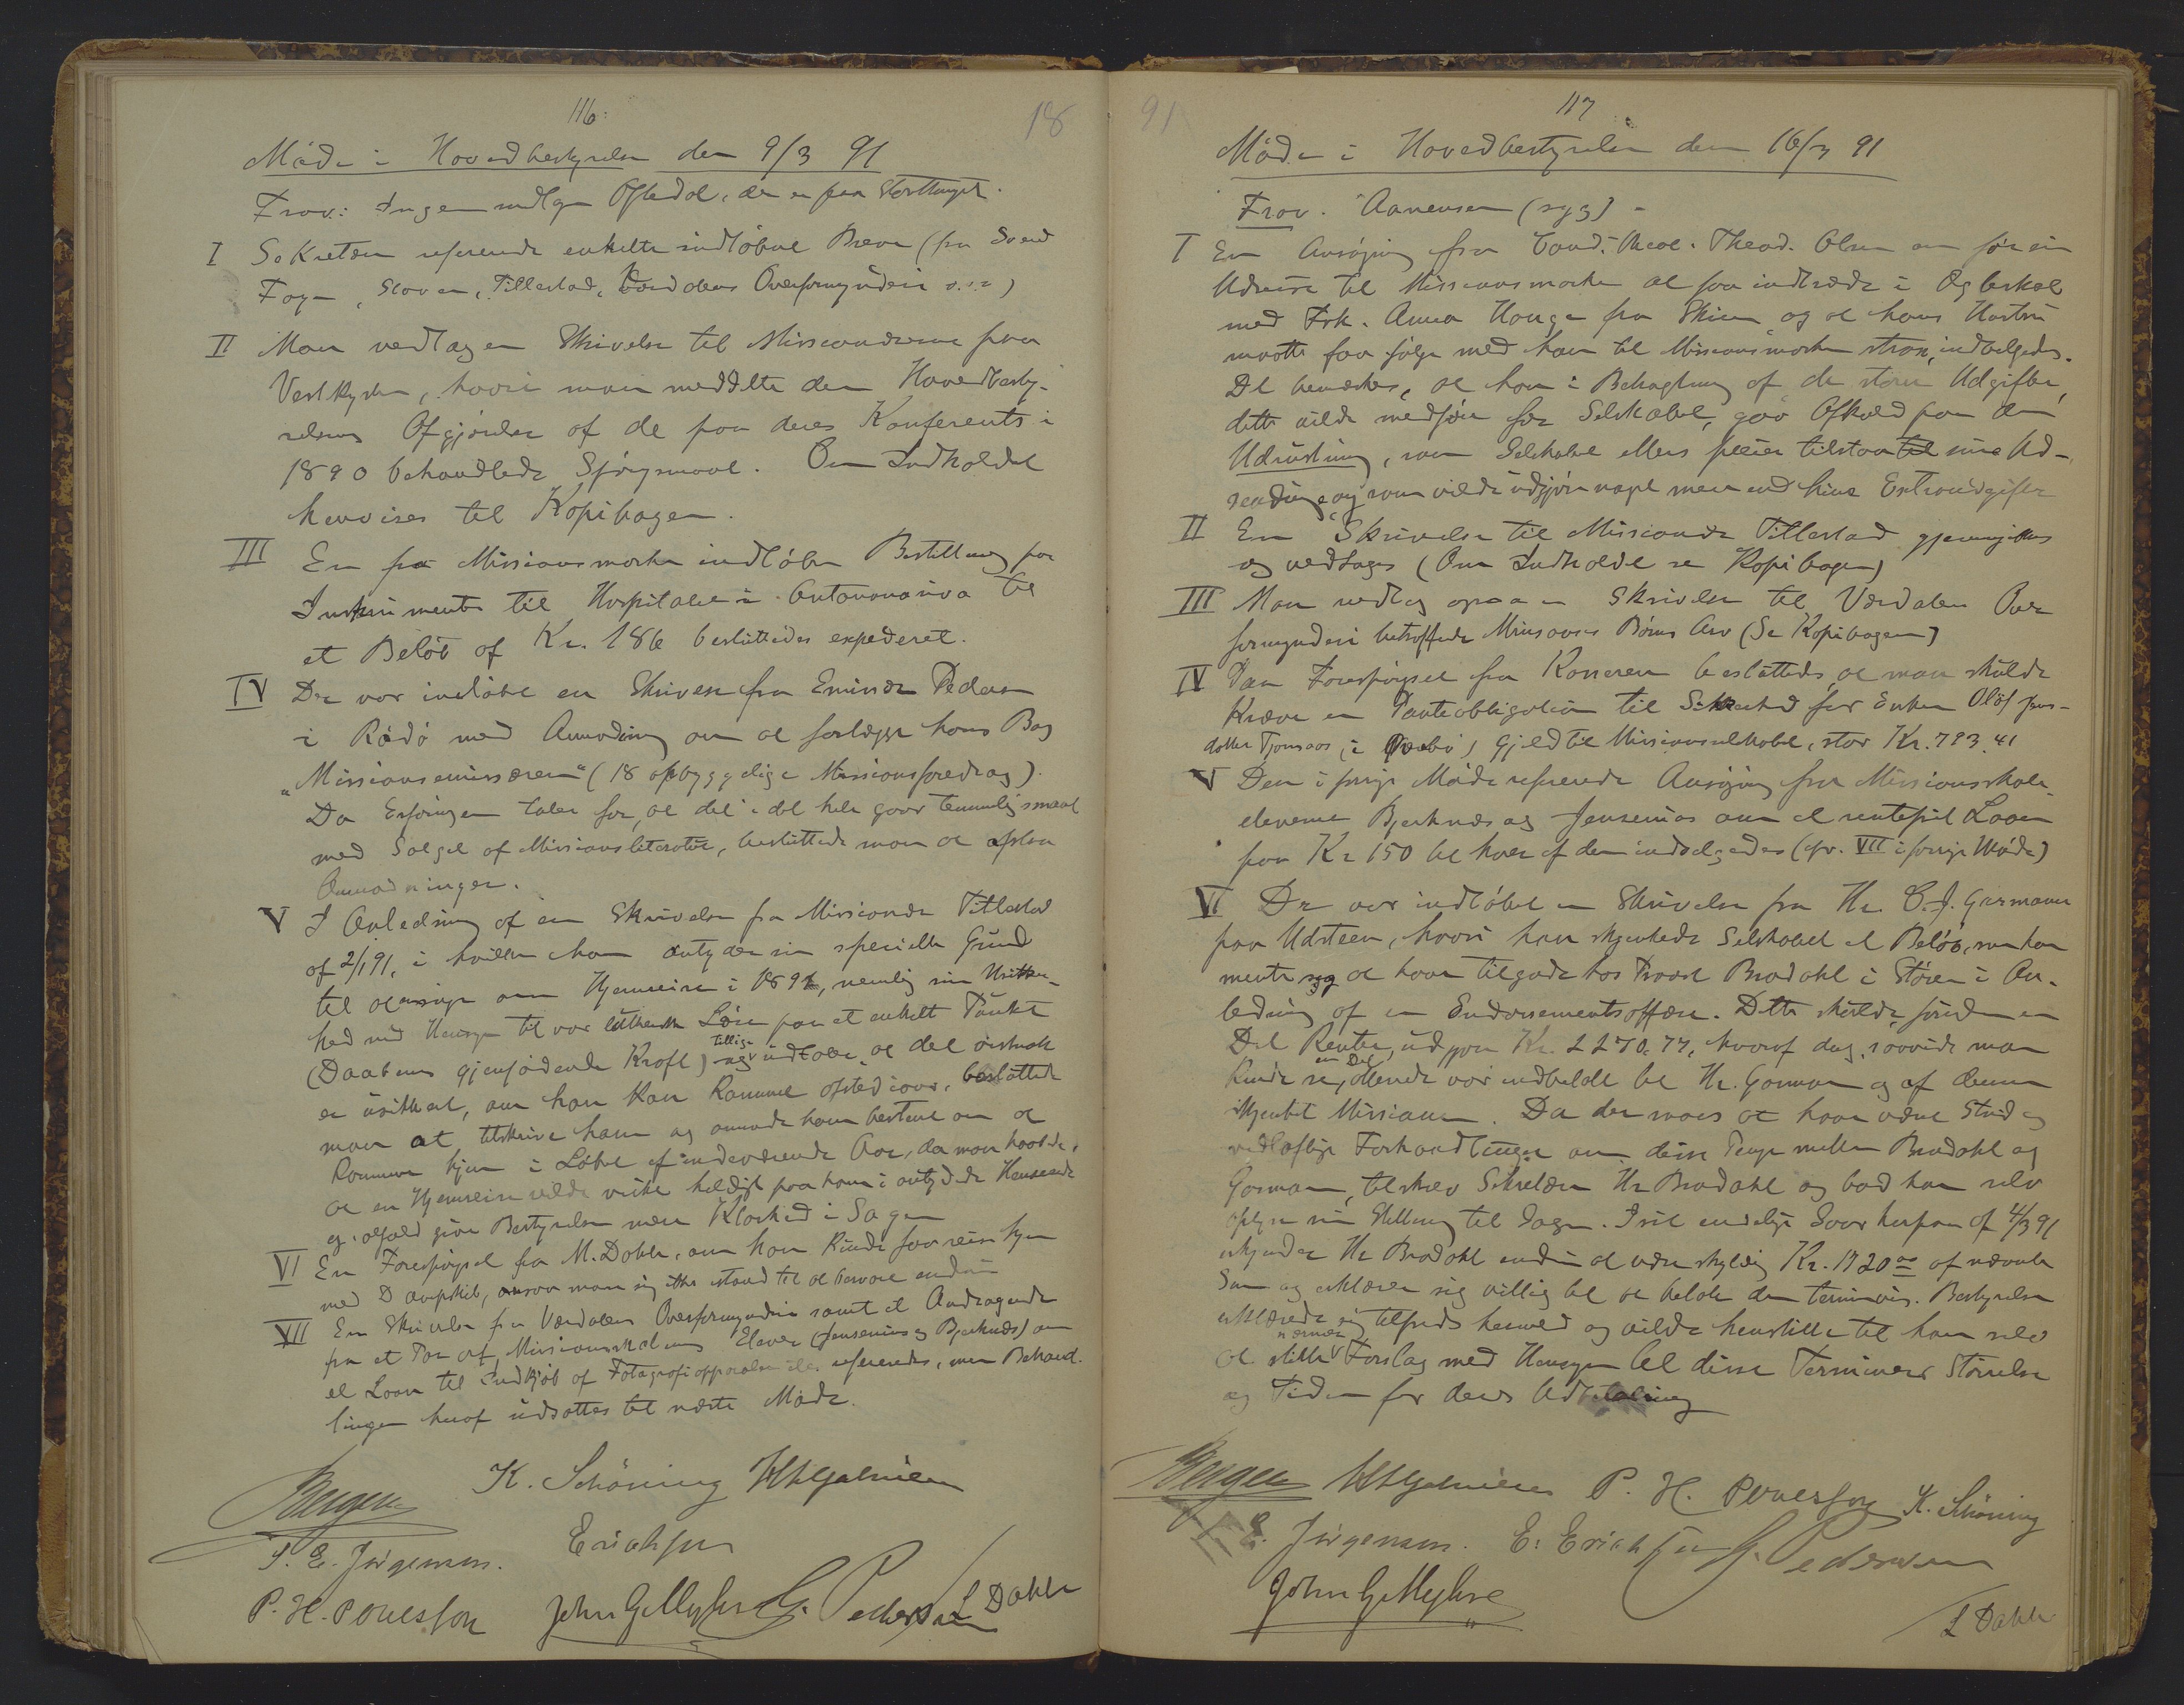 116.
18
Møde i Hovedbestyrelsen den 9/3 91
Frav: Ingen undtagen Oftedal, der er paa Storthinget.
I Sekretæren refererede enkelte indløbne Breve (fra Svend
Foyn, Stoven, Tillestad, Værdalens Overformynderi o.s.v)
II Man vedtog en Skrivelse til Missionærerne paa
Vestkysten, hvori man meddelte dem Hovedbesty-
relsens Afgjørelse af de paa deres Konferents i
1890 behandlede Spørgsmaal. Om Indholdet
henvises til Kopibogen.
III En fra Missionsmarken indløben Bestilling paa
Instrumenter til Hospitalet i Antananarivo til
et Beløb af Kr. 186 besluttedes expederet.
IV Der var indløbet en Skrivelse fra Emissær Pedersen
i Rødø med Anmodning om at forlægge hans Bog
"Missionsemissæren" (18 opbyggelige Missionsforedrag).
Da Erfaringen taler for, at det i det hele gaar temmelig smaat
med Salget af Missionsliteratur, besluttede man at afslaa
Anmodningen.
V I Anledning af en Skrivelse fra Missionær Tillestad
af 2/1 91, i hvilken han antyder sin specielle Grund
til at ansøge om Hjemreise i 1892, nemlig sin Usikker-
hed med Hensyn til vor lutherske Lære paa et enkelt Punkt
(Daabens gjenfødende Kraft) og tillige udtaler, at det ønskede
er usikkert, om han kan komme afsted iaar, besluttede
man at tilskrive ham og anmode ham bestemt om at
komme hjem i Løbet af indeværende Aar, da man haabede,
at en Hjemreise vilde virke heldigt paa ham i antydede Henseende
og ialfald give Bestyrelsen mere Klarhed i Sagen
VI En Forespørgsel fra M. Dahle, om han kunde faa reise hjem
med Dampskib, ansaa man sig ikke istand til at besvare endnu
VII En Skrivelse fra Værdalens Overformynderi samt et Andragende
fra et Par af Missionsskolens Elever (Jensenius og Bjerknæs) om
et Laan til Indkjøb af Fotografiapparater etc. refereredes, men Behand-
lingen heraf udsattes til næste Møde.
Borgen K. Schöning
T. E. Jørgensen. Erichsen
P. H. Povelsson John G. Myhre G. Pedersen L Dahle
91
117
Møde i Hovedbestyrelsen den 16/3 91
Frav. Aanensen (syg) -
I En Ansøgning fra Cand. theol. Theod. Olsen om før sin
Udreise til Missionsmarken at faa indtræde i Ægteskab
med Frk. Anna Hauge fra Skien og at hans Hustru
maatte faa følge med ham til Missionsmarken strax, indvilgedes.
Det bemærkes, at han i Betragtning af de større Udgifter,
dette vilde medføre for Selskabet, gav Afkald paa den
Udrustning, som Selskabet ellers pleier tilstaa sine Ud-
sendinge og som vilde udgjøre noget mere end hine Extraudgifter
II En Skrivelse til Missionær Tillestad gjennemgikkes
og vedtoges (Om Indholdet se Kopibogen)
III Man vedtog ogsaa en Skrivelse til Værdalens Over
formynderi betræffende Børns Arv (Se Kopibogen)
IV Paa Forespørgsel fra Kasseren besluttedes, at man skulde
kræve en Panteobligation til Sikkerhed for Enken Oløf Jens-
datter Gjeld til Missionsselskabet, stor Kr. 793.41
V Den i forrige Møde refererede Ansøgning fra Missionsskole-
eleverne Bjerknæs og Jensenius om et rentefrit Laan
paa Kr 150 til hver af dem indvilgedes (cfr. VII i forrige Møde)
VI Der var indløbet en Skrivelse fra Hr. C. J. Garmann
paa Udsteen, hvori han skjænkede Selskabet et Beløb, som han
mente sig at have tilgode hos Provst Brodahl i Støren i An-
ledning af en Endossementsaffære. Dette skulde, foruden en
Del Renter, udgjøre Kr. 2270.77, hvoraf dog, saavidt man
kunde se, en Del allerede var indbetalt til Hr. Garmann og af denne
skjænket Missionen. Da der maa at have været Strid og
vidløftige Forhandlinger om disse Penge mellem Brodahl og
Garmann, tilskrev Sekretæren Hr Brodahl og bad ham selv
oplyse sin Stilling til Sagen. I sit endelige Svar herpaa af 4/3 91
erkjender Hr Brodahl endnu at være skyldig Kr. 1720 00 af nævnte
Sum og erklærer sig villig til at betale den terminvis. Bestyrelsen
erklærede sig tilfreds hermed og vilde henstille til ham selv
at stille nærmere Forslag med Hensyn til disse Terminers Størrelse
og Tiden for deres Udbetaling
Borgen P. H. Povelsson K. Schöning
T. E. Jørgensen. E. Erichsen G. Pedersen
John G. Myhre
L Dahle